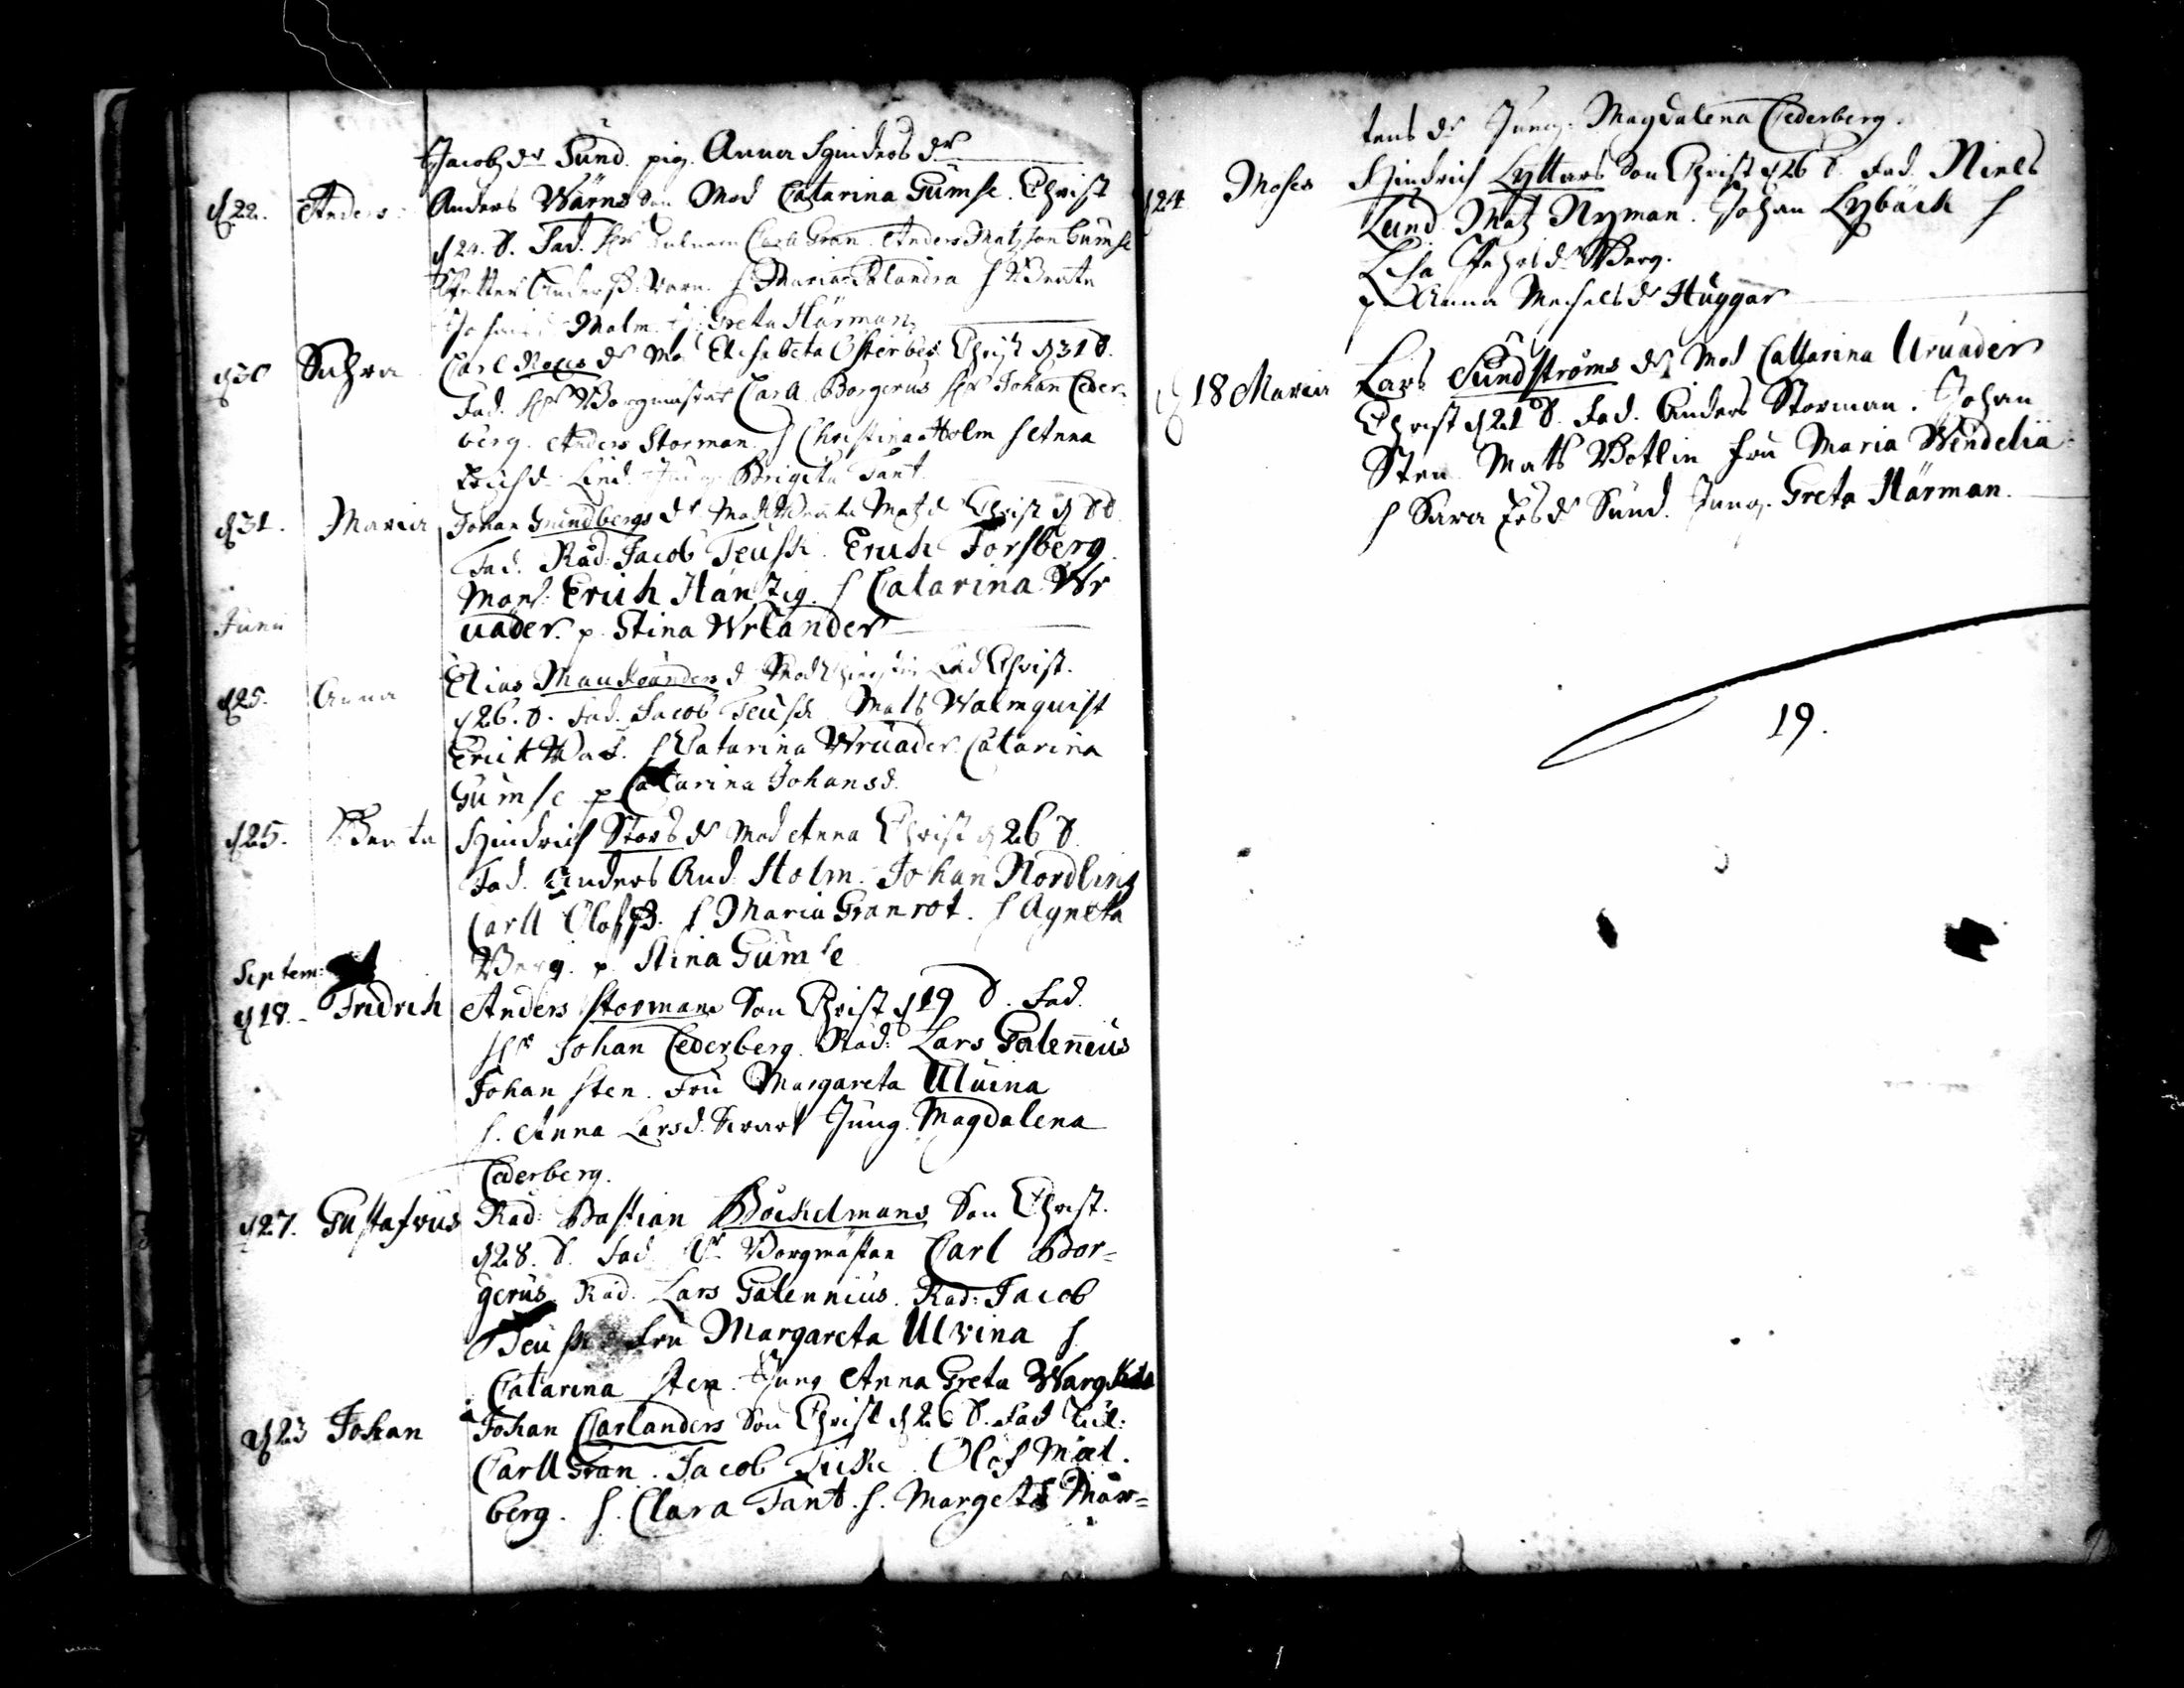 Jacobz dr Sund. pig. Anna dr
d 22. Anders Anders Wärns Son Mod Catarina Gumse. Christ
d 24. D. Fad. Hr Carll Gran. Anders Matzson Gumse
Petter Anderß. Warn. H Maria Polandra H Beata
Malm. J. Greta Härman
d 30 Sahra Carl Roxes dr Mo. Elisabeta Österber Christ d 31 D.
Fad. Hr Borgmästar Carll Borgerus Hr Johan Ceder-
berg. Anders Storman. H Christina Holm H Anna
Erichsd. Lind. Jung Brigita Tant
d 31. Maria Johan Grundbergs dr Mod Beata Matzd Christ d D D
Fad. Råd: Jacob Teuske. Erich Forsberg
Mons. Erich Häntzig. H Catarina Wr
uäder. p. Stina Wrlander
Junii
d 25. Anna Elias Mauleanders d Mod Christ.
d 26. D. Fad. Jacob Teuske Mats Walmquist
Erick Was. H Catarina Wruader Catarina
Gumse p Catarina Johansd.
d 25. Beata Hindrich Stors dr Mod Anna Christ d 26 D
Fad. Anders And. Holm. Johan Nordling
Carll Olofß. H Maria Granrot. H Agneta
Berg. p. Stina Gumse
Septem:
d 18. Fridrich Anders Stormans Son Christ d 19 D. Fad.
Hr Johan Cederberg. Råd: Lars Galenius
Johan Sten. Fru Margareta Uluina
H. Anna Larsd. Swart Jung. Magdalena
Cederberg.
d 27. Gustafvus Råd: Bastian Böckelmans Son Christ.
d 28. D. Fad. Hr Borgmästan Carl Bor=
gerus. Råd. Lars Galennius. Råd: Jacob
Teuske Fru Margareta Ulvina H.
Catarina Sten. Jung Anna Greta Warg
d 23 Johan Johan Carlanders Son Christ d 26 D. Fad Tul:
Carll Gran. Jacob Tuske. Olof Mal.
berg. H. Clara Tant. H. Margeta Mår=
tens dr Jung. Magdalena Cederberg.
d 24 Moses Hindrich Lyttars Son Christ d 26 D. Fad. Niels
Lund. Matz Nyman. Johan Lybäck H
Lisa Pehrsdr Berg.
p Anna Michelsdr Huggar
d 18 Maria Lars Sundströms dr Mod Cattarina Uruäder
Christ d 21 D. Fad. Anders Storman. Johan
Sten Mats Botlin Fru Maria Wendelia
H Sara Ersdr Sund. Jung. Greta Härman.
19.